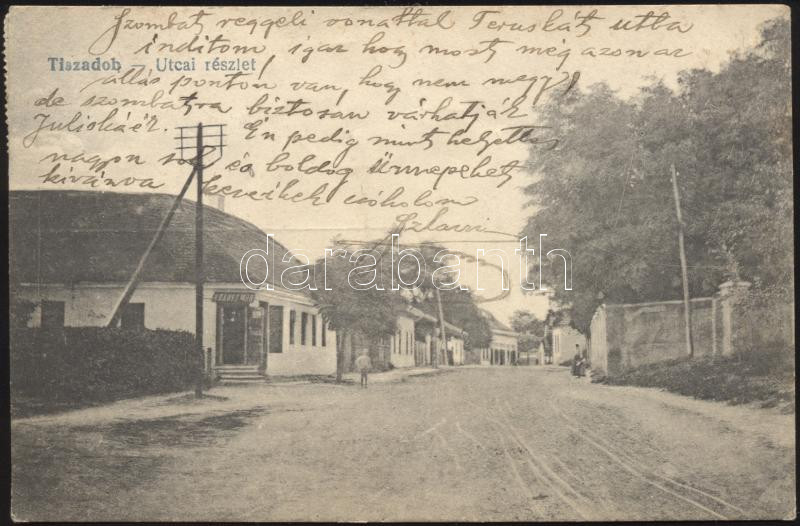 Szombat reggeli vonattal Teruskát utba
inditom, igaz hogy most még azon az
Tiszadob – Utcai részlet
állás ponton van, hogy nem megy,
de szombatra biztosan várhatják
Juliskáék. Én pedig mint helyettes
nagyon sok és boldog ünnepeket
kivánva kezeiket csókolom
darabanth